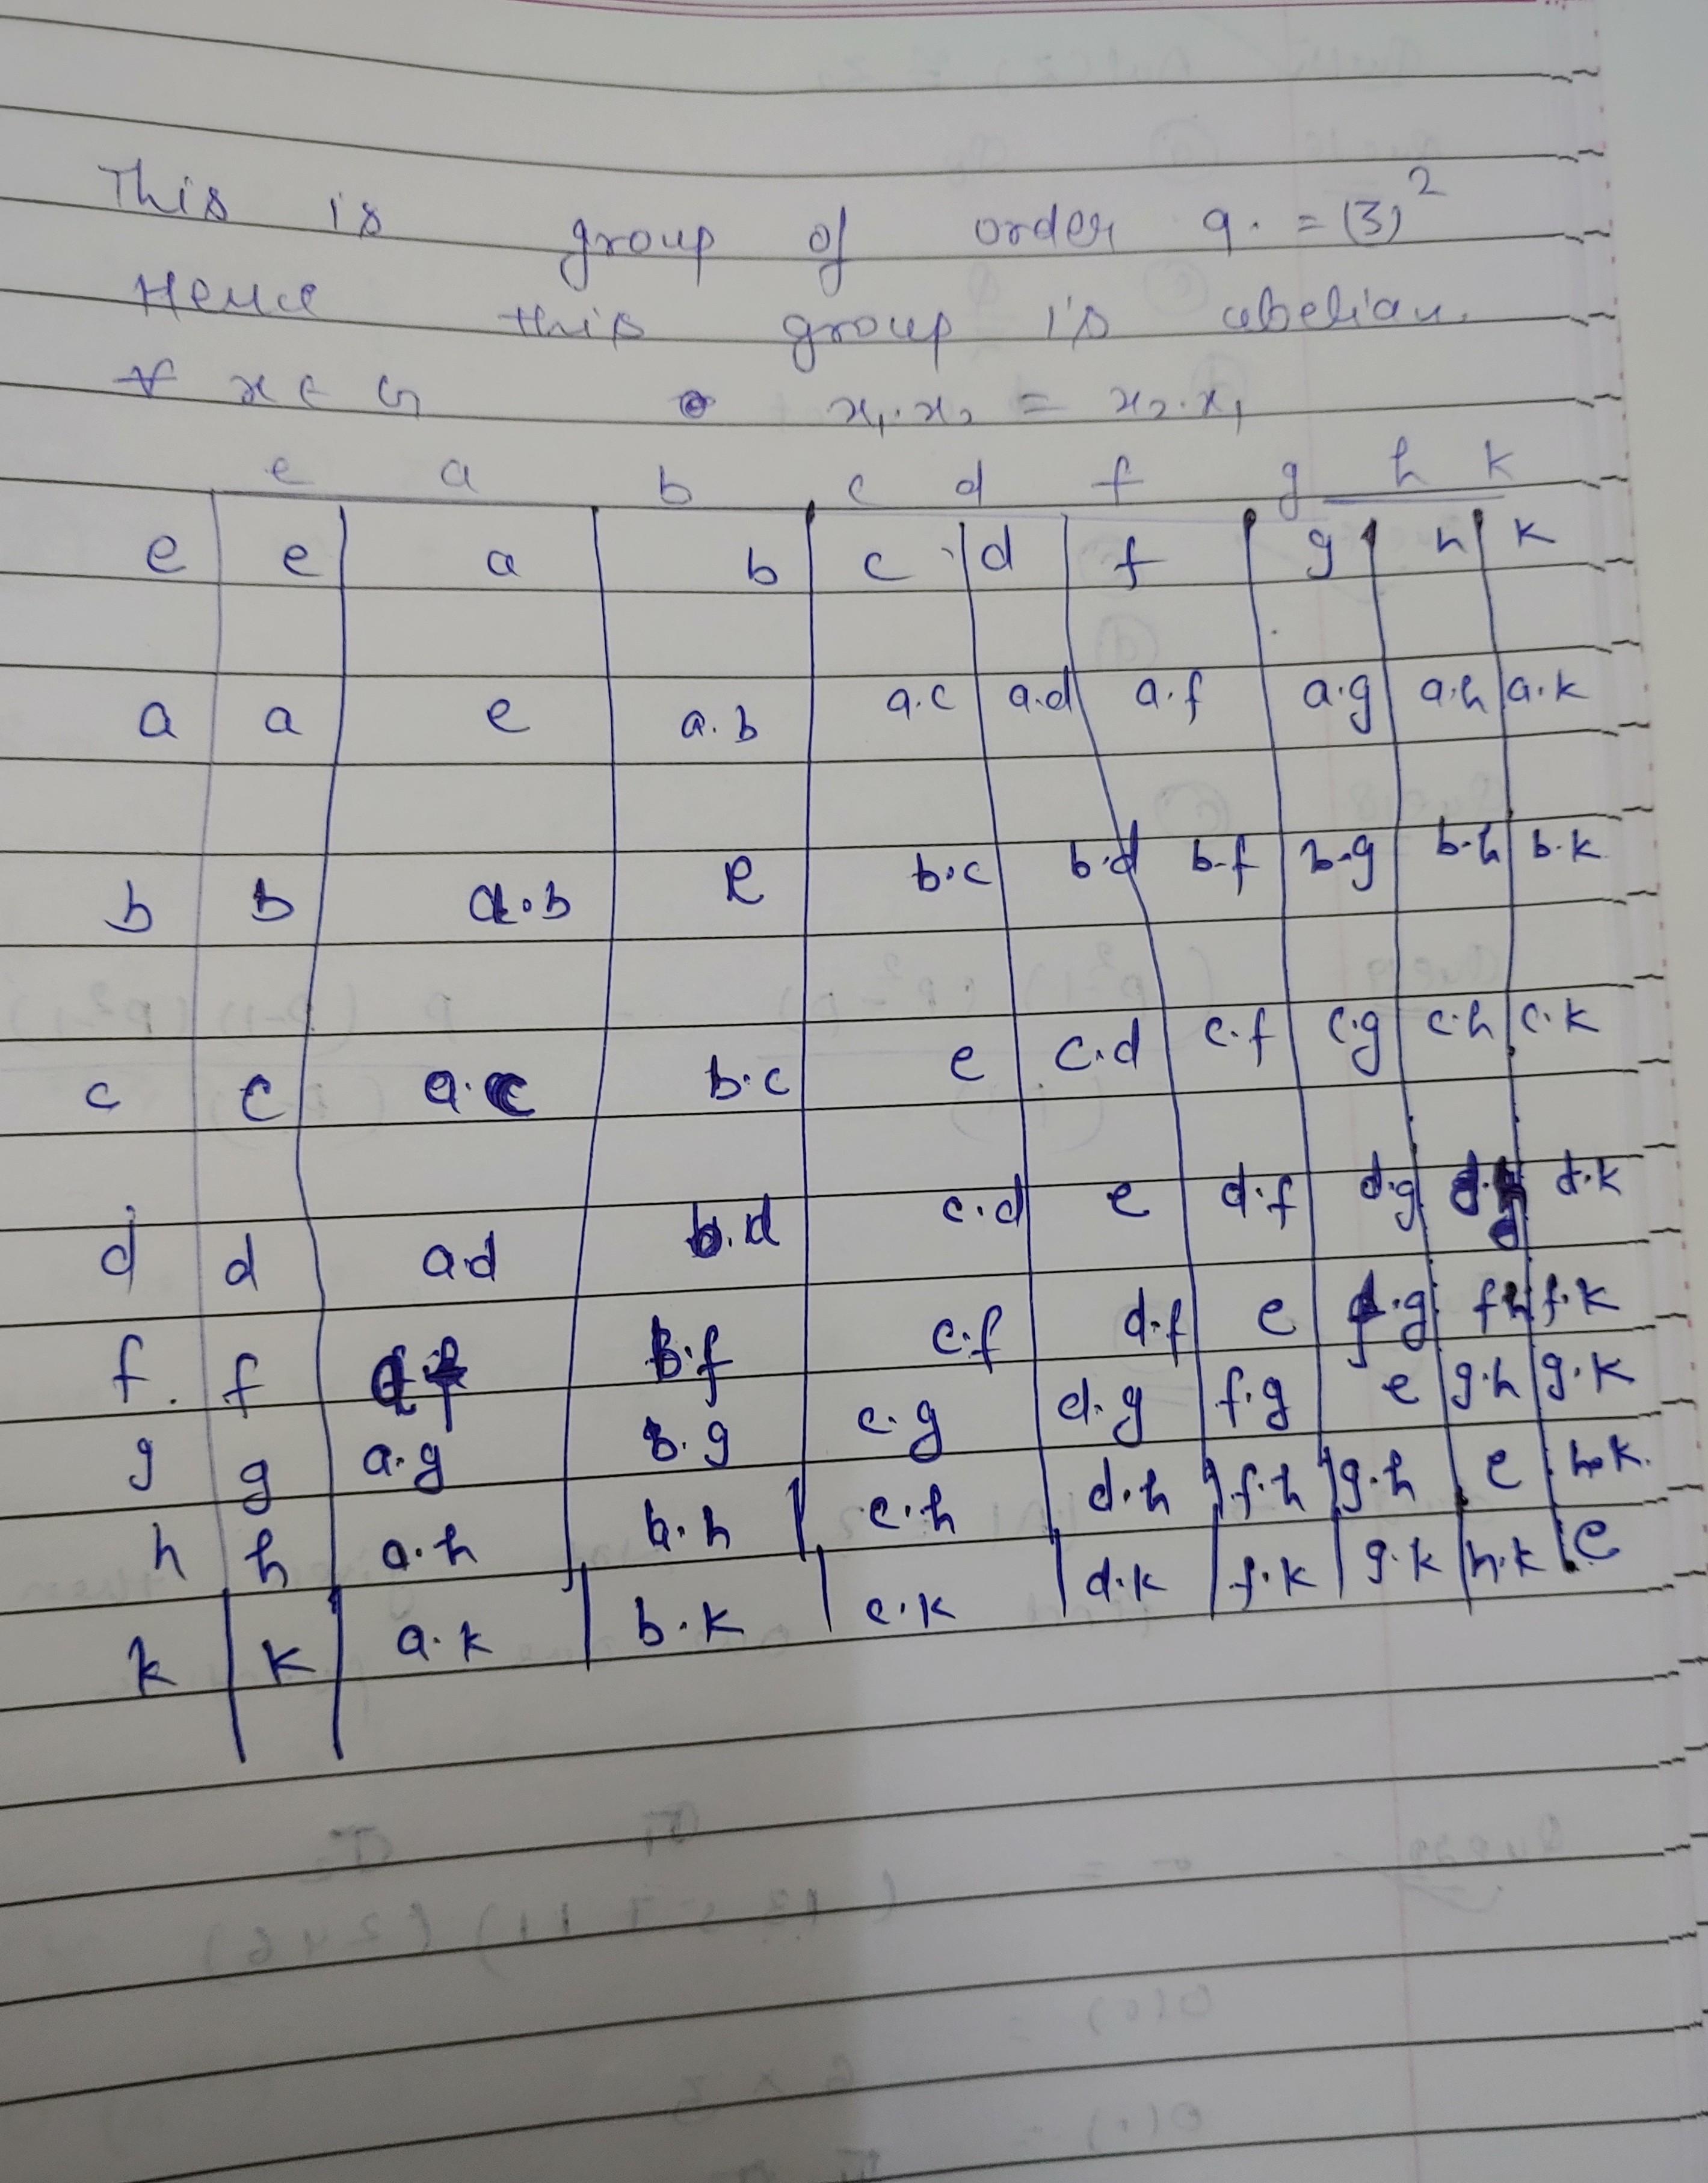 This is group of order 9. = (3)²
Hence this group is abelian.
∀ x ∈ G x₁.x₂ = x₂.x₁
e a b c d f g h k
e e a b c d f g h k
a a e a.b a.c a.d a.f a.g a.h a.k
b b a.b e b.c b.d b.f b.g b.h b.k
c c a.c b.c e c.d c.f c.g c.h c.k
d d a.d b.d c.d e d.f d.g d.k
f. f a.f b.f c.f d.f e f.g f.h f.k
g g a.g b.g c.g d.g f.g e g.h g.k
h h a.h b.h c.h d.h f.h g.h e h.k.
k k a.k b.k c.k d.k f.k g.k h.k e